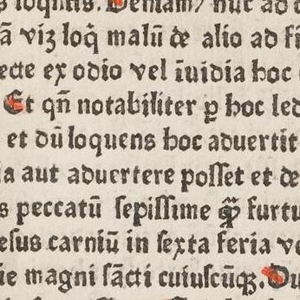 s loquitis. Deniam/ huc ad
ā viz loq̄ malū de alio ad fi
ecte ex odio vel īuidia hoc
Et qn̄ notabiliter ꝑ hoc led
et dū loquens hoc aduertit
ia aut aduertere posset et de
s peccatū sepissime ꝙ̄ furtu
esus carniū in sexta feria ve
ie magni sācti cuiuscūqꝫ. Du